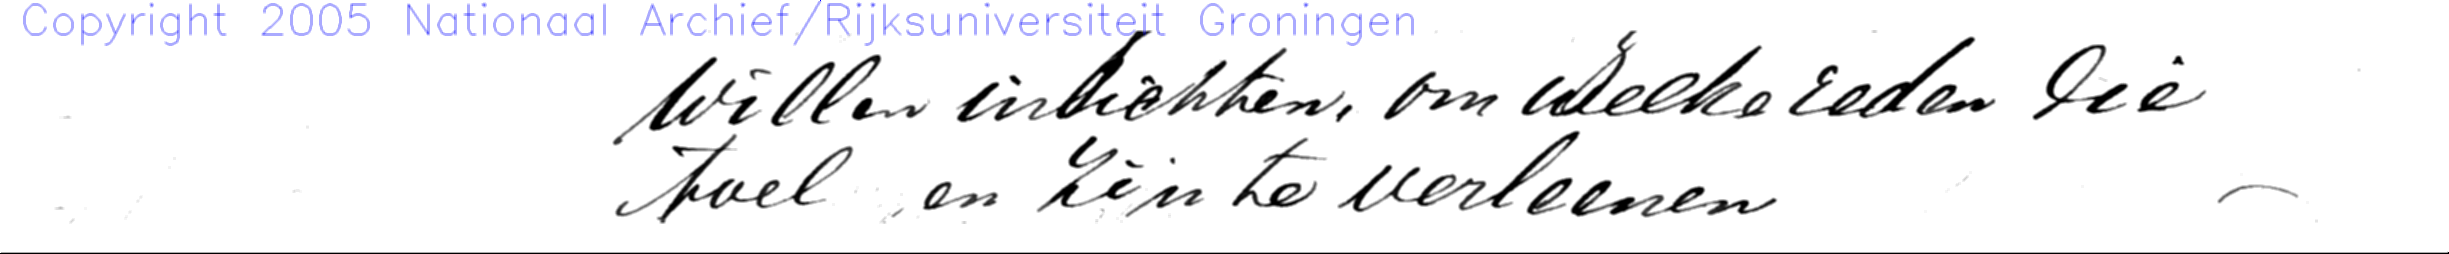 Copyright 2005 Nationaal Archief/Rijksuniversiteit Groningen
Willen inlichten, om Welke reden die
en Zijn te verleenen